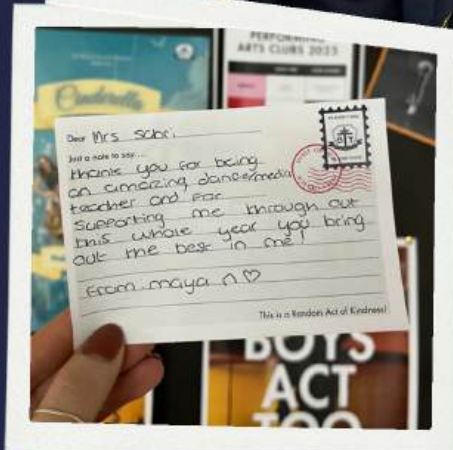 Cinderella
PERFORMING
ARTS CLUBS 2023
Dear Mrs Sabri
Just a note to say....
thank you for being
an amazing dance/media
teacher and for
supporting me through out
this whole year you bring
out the best in me!
From maya n ♡
This is a Random Act of Kindness!
BOYS
ACT
TOO